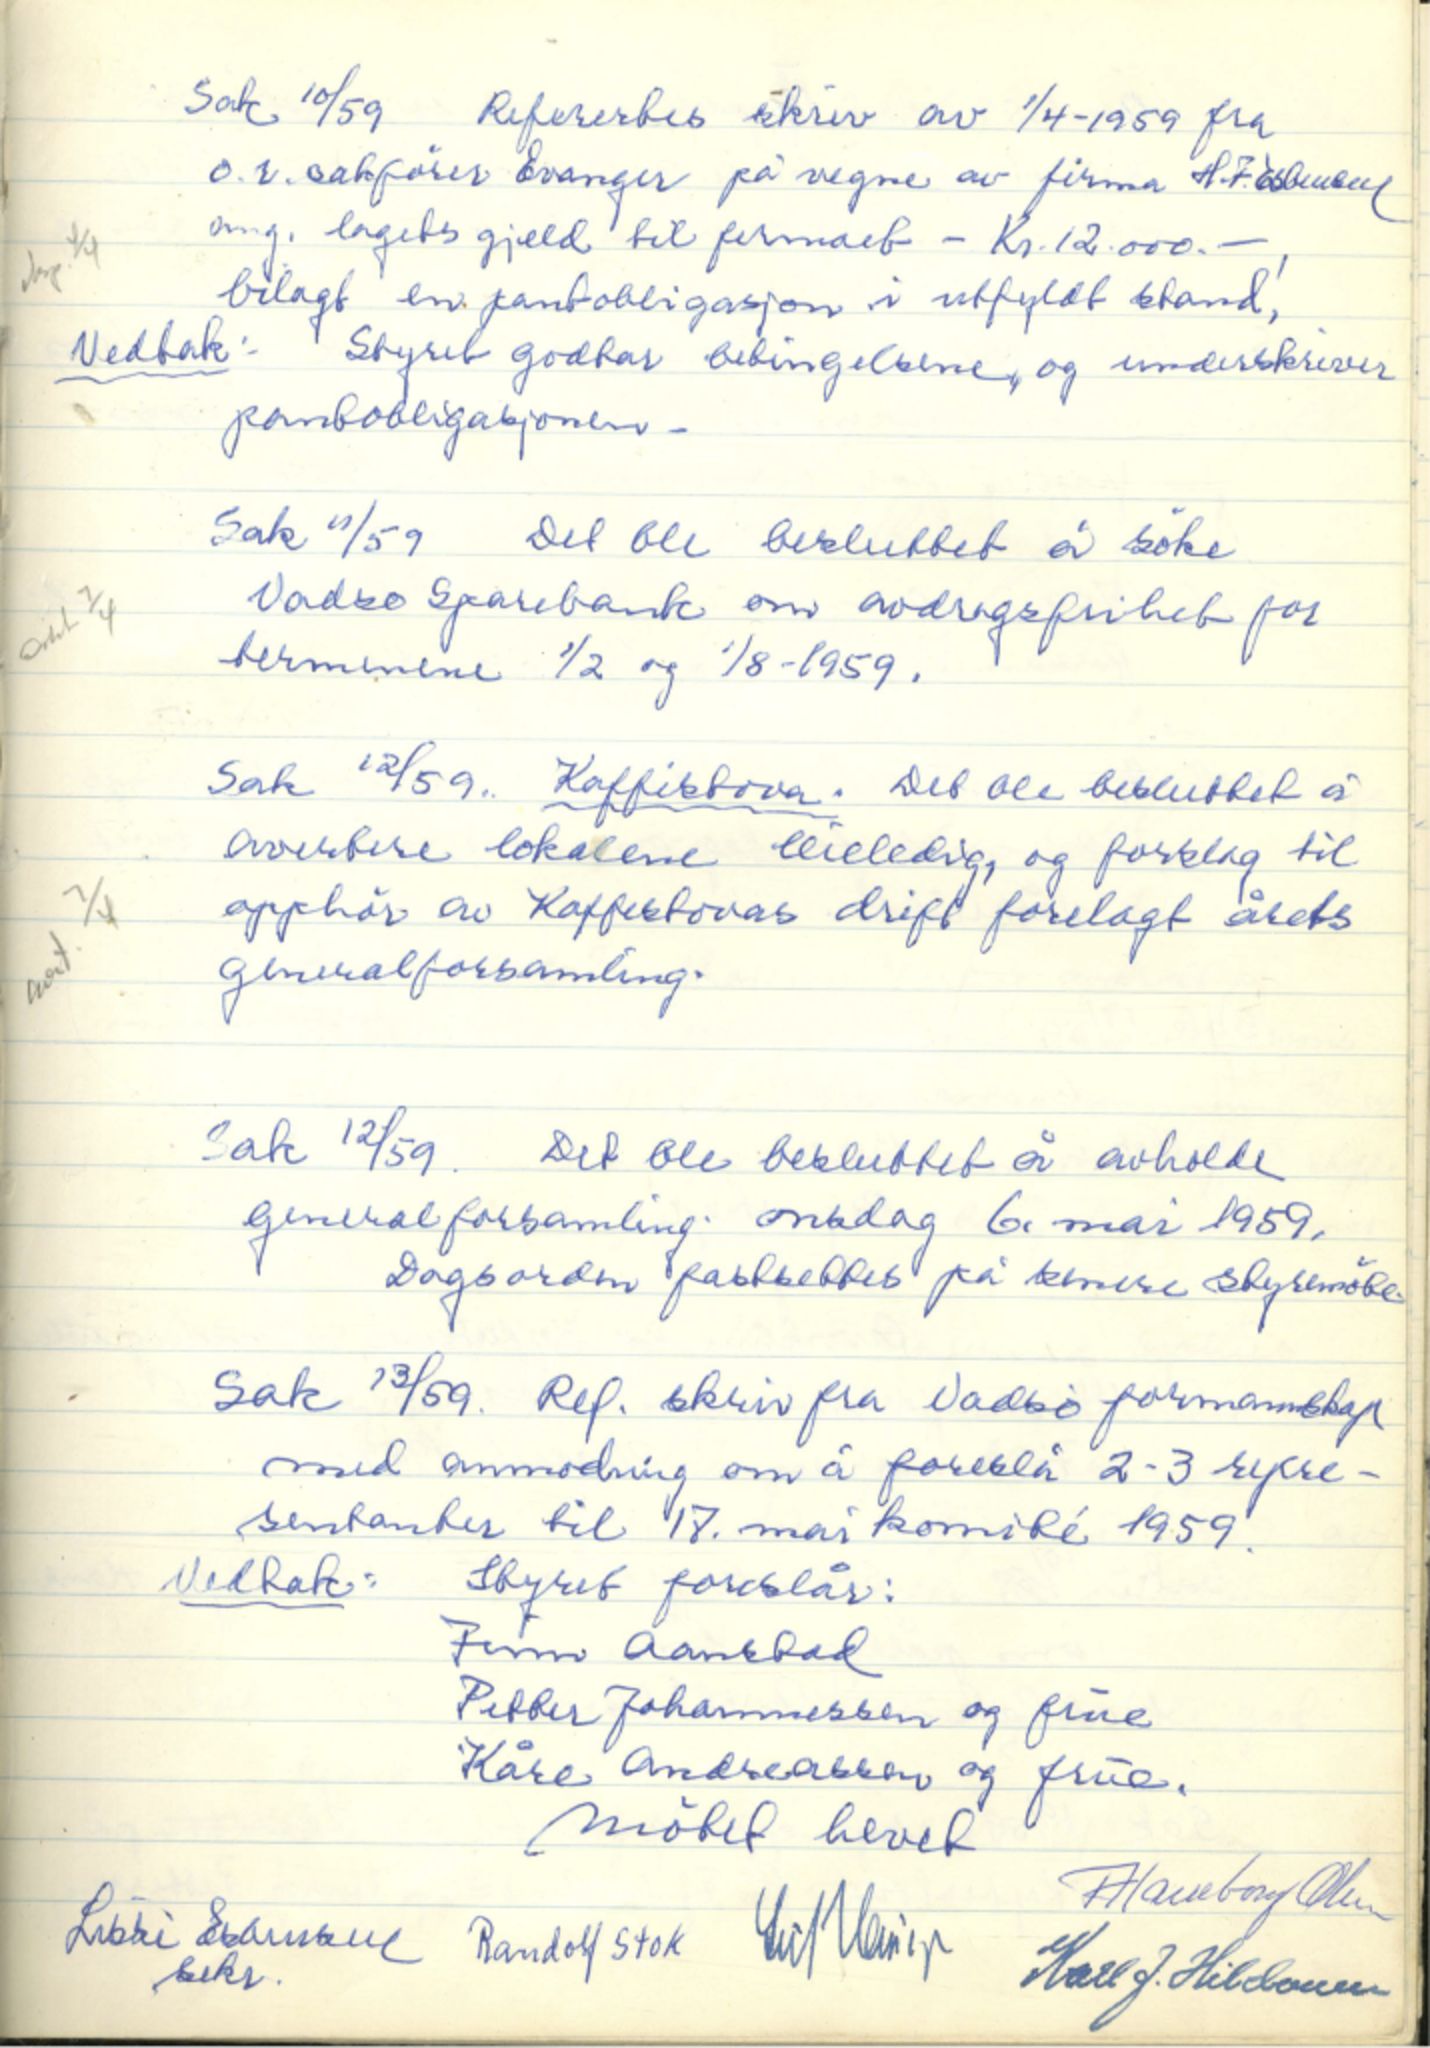 Sak 10/59 Refererbes skriv av 1/4-1959 fra
o.r. sakförer Evanger på vegne av firma H.F. Esbensen
ang. lagets gjeld til firmaet - Kr. 12.000.-,
bilagt en pantobligasjon i utfyldt stand,
Vedtak:- Styret godtar betingelsene, og underskriver
pantobligasjonen -
Sak 11/59 Det ble besluttet å söke
Vadsö Sparebank om avdragsfrihet for
terminene 1/2 og 1/8-1959.
7/4
Sak 12/59. Kaffistova. Det ble besluttet å
avertere lokalene leieledig, og forslag til
opphör av Kaffistovas drift forelagt årets
generalforsamling.
avert. 7/4
Sak 12/59. Det ble besluttet å avholde
generalforsamling onsdag 6. mai 1959.
Dagsorden fastsettes på senere styremöte.
Sak 13/59. Ref. skriv fra Vadsö formannskap
med anmodning om å foreslå 2-3 repre-
sentanter til 17. mai komité 1959.
Vedtak: Styret foreslår:
Finn Aanstad
Petter Johannessen og frue
Kåre Andreassen og frue.
Mötet hevet
Lissi Esbensen Randolf Stok
sekr.
Karl J.